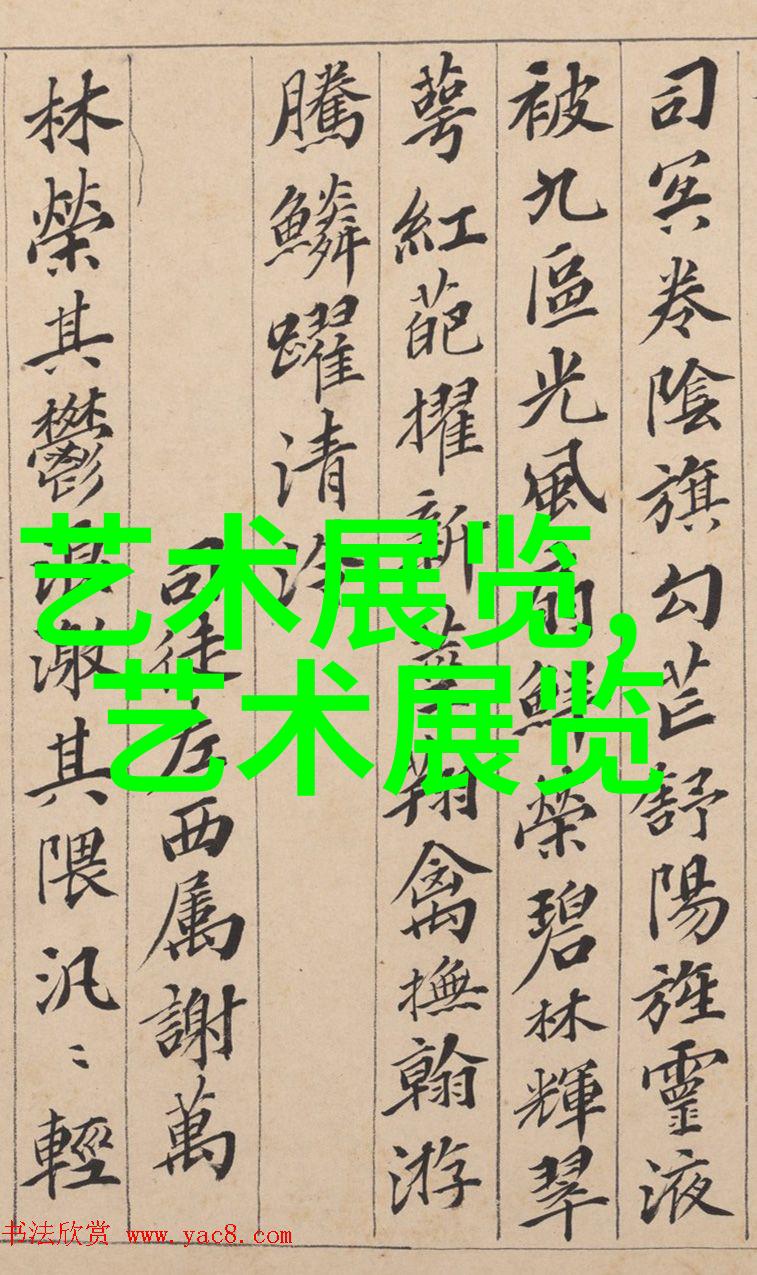 司冥卷陰旗勾芒舒陽旌靈液
被九區光風扇鮮榮碧林輝翠
萼紅葩擢新莖翔禽撫翰游
騰鱗躍清泠
司徒左西属謝萬
林榮其鬱浪激其隈汎〻輕
艺术展览,
艺术展览
书法欣赏 www.yac8.com